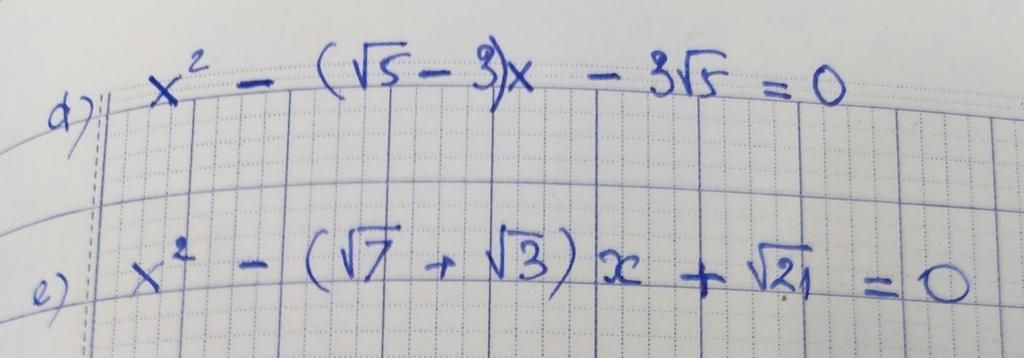 d) x² - (√5 - 3)x - 3√5 = 0
e) x² - (√7 + √3) x + √21 = 0